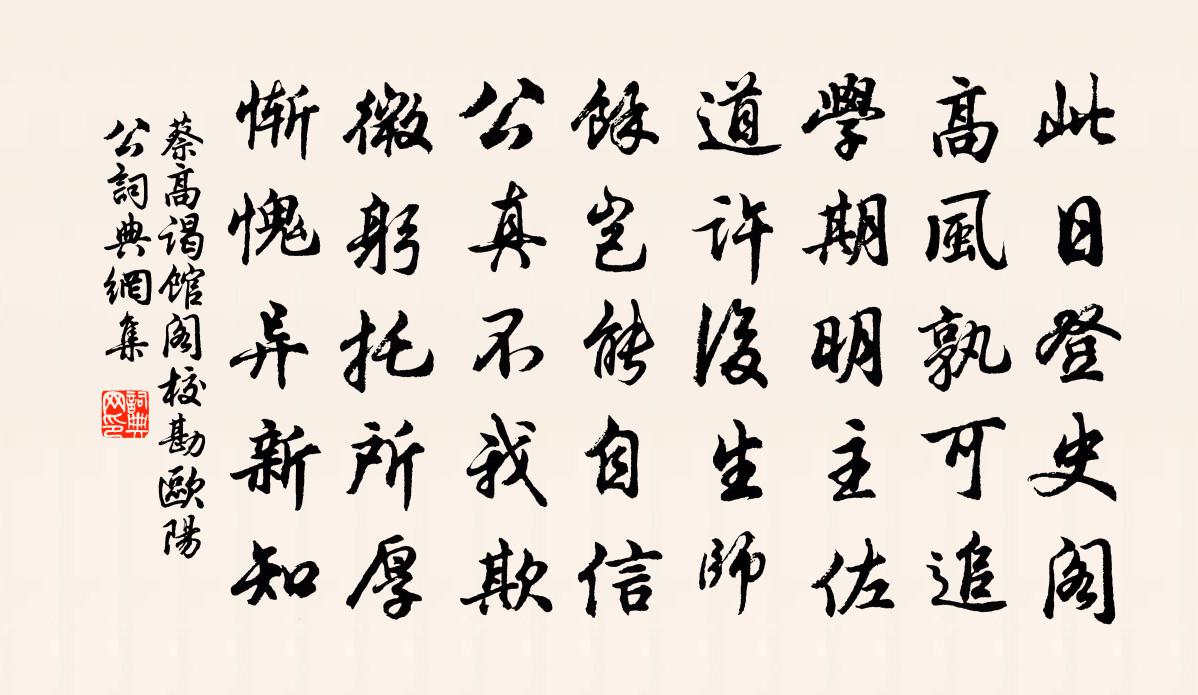 此日登史阁
高風孰可追
學期明主佐
道許後生師
餘岂能自信
公真不我欺
微躬托所厚
惭愧异新知
蔡高谒馆阁校勘歐陽
公詞典網集
詞典
网印